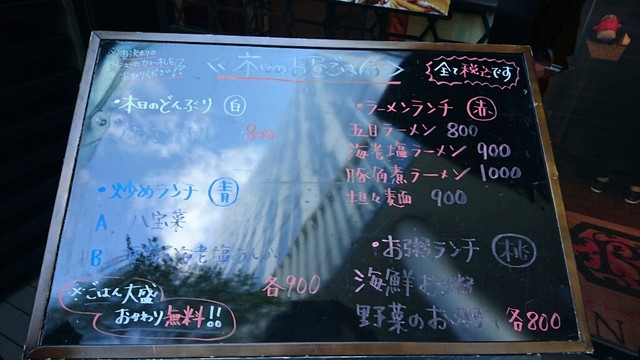 本日のお昼ごはん
全て税込です
・本日のどんぶり 白
800
・炒めランチ 青
A. 八宝菜
B 海老塩
各900
※ごはん大盛
おかわり無料!!
・ラーメンランチ 赤
五目ラーメン 800
海老塩ラーメン 900
豚角煮ラーメン 1000
担々麺 900
・お粥ランチ 桃
海鮮お粥
野菜のお粥 各800